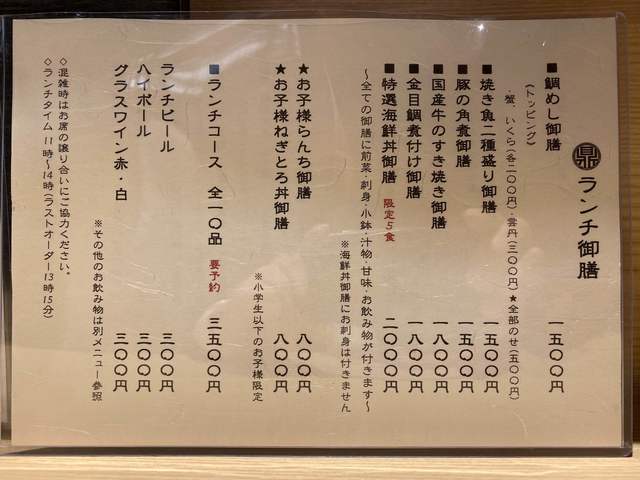 鼎 ランチ御膳
■鯛めし御膳 一五〇〇円
(トッピング)
・蟹、いくら(各二〇〇円)・雲丹(三〇〇円)★全部のせ(五〇〇円)
■焼き魚二種盛り御膳 一五〇〇円
■豚の角煮御膳 一五〇〇円
■国産牛のすき焼き御膳 一八〇〇円
■金目鯛煮付け御膳 一八〇〇円
■特選海鮮丼御膳 限定5食 二〇〇〇円
〜全ての御膳に前菜・刺身・小鉢・汁物・甘味・お飲み物が付きます〜
※海鮮丼御膳にお刺身は付きません
★お子様らんち御膳 八〇〇円
★お子様ねぎとろ丼御膳 八〇〇円
※小学生以下のお子様限定
■ランチコース 全一〇品 要予約 三五〇〇円
ランチビール 三〇〇円
ハイボール 三〇〇円
グラスワイン赤・白 三〇〇円
※その他のお飲み物は別メニュー参照
◇混雑時はお席の譲り合いにご協力ください。
◇ランチタイム 11時〜14時(ラストオーダー13時15分)